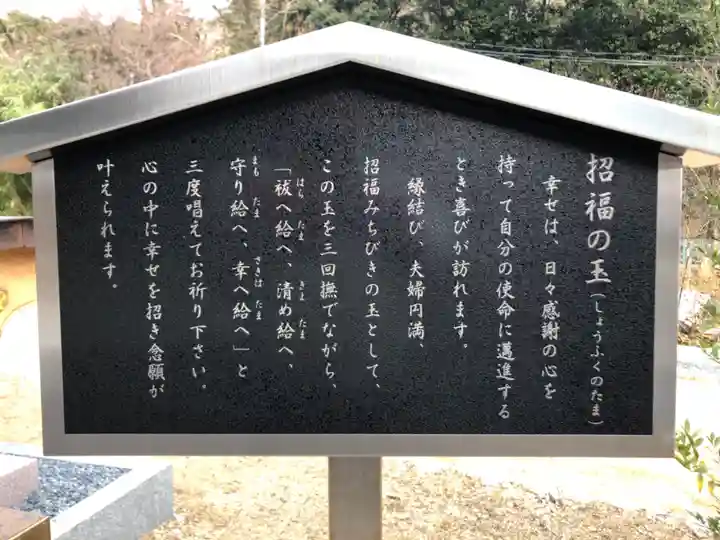 招福の玉（しょうふくのたま）
幸せは、日々感謝の心を
持って自分の使命に邁進する
とき喜びが訪れます。
縁結び、夫婦円満、
招福みちびきの玉として、
この玉を三回撫でながら、
「祓へ給へ、清め給へ、
はら たま きよ たま
守り給へ、幸へ給へ」と
まも たま さきは たま
三度唱えてお祈り下さい。
心の中に幸せを招き念願が
叶えられます。